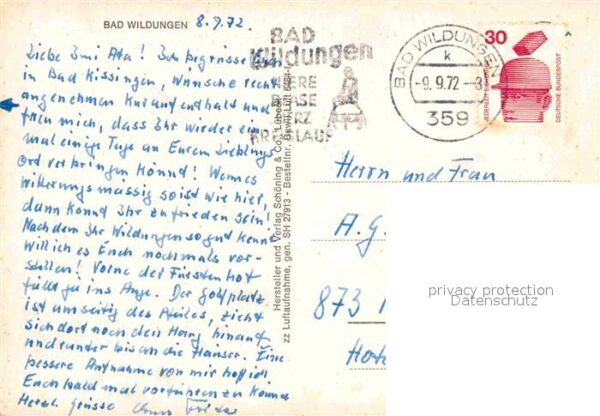 BAD WILDUNGEN 8.9.72.
Liebe Emi Ata! Ich begrüsse Euch
in Bad Kissingen, wünsche recht
angenehmen Kuraufenthalt und
freu mich, dass Ihr wieder ein-
mal einige Tage an Eurem Lieblings
Ort verbringen könnt! Wenn es
Witterungsmässig so ist wie hier,
dann könnt Ihr zufrieden sein!
Nachdem Ihr Wildungen so gut kennt
will ich es Euch nochmals vor-
stellen! Vorne der Fürstenhof
fällt ja ins Auge. Der Golfplatz
ist umseitig des Pfeiles, zieht
sich dort noch den Hang hinauf
und runter bis an die Häuser. Eine
bessere Aufnahme von mir hoff ich
Euch bald mal vorführen zu können
Herzl. Grüsse
Hersteller und Verlag Schöning & Co., Lübeck
zz Luftaufnahme, gen. SH 27913 - Bestellnr. Bewil Luft 6484
BAD
Wildungen
NIERE
BLASE
HERZ
KREISLAUF
BAD WILDUNGEN
k
-9.9.72-8
359
30
JEDERZEIT SICHERHEIT
DEUTSCHE BUNDESPOST
Herrn und Frau
A. G.
873
Hot
privacy protection
Datenschutz